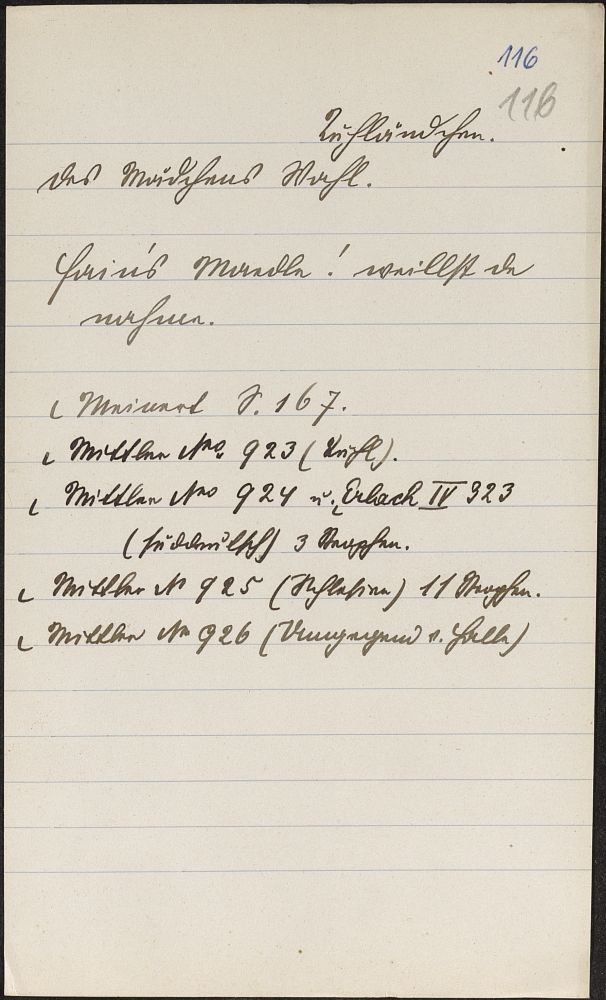 116
116
Kuhländchen.
Des Mädchens Wahl.
Hains Maedle! weillst de
nahme.
Meinert S. 167.
Mittler No. 923 (Kuhl).
Mittler No 924 u. Erlach IV 323
(süddeutsch) 3 Strophen.
Mittler No 925 (Schlesien) 11 Strophen.
Mittler No 926 (Umgegend v. Halle)